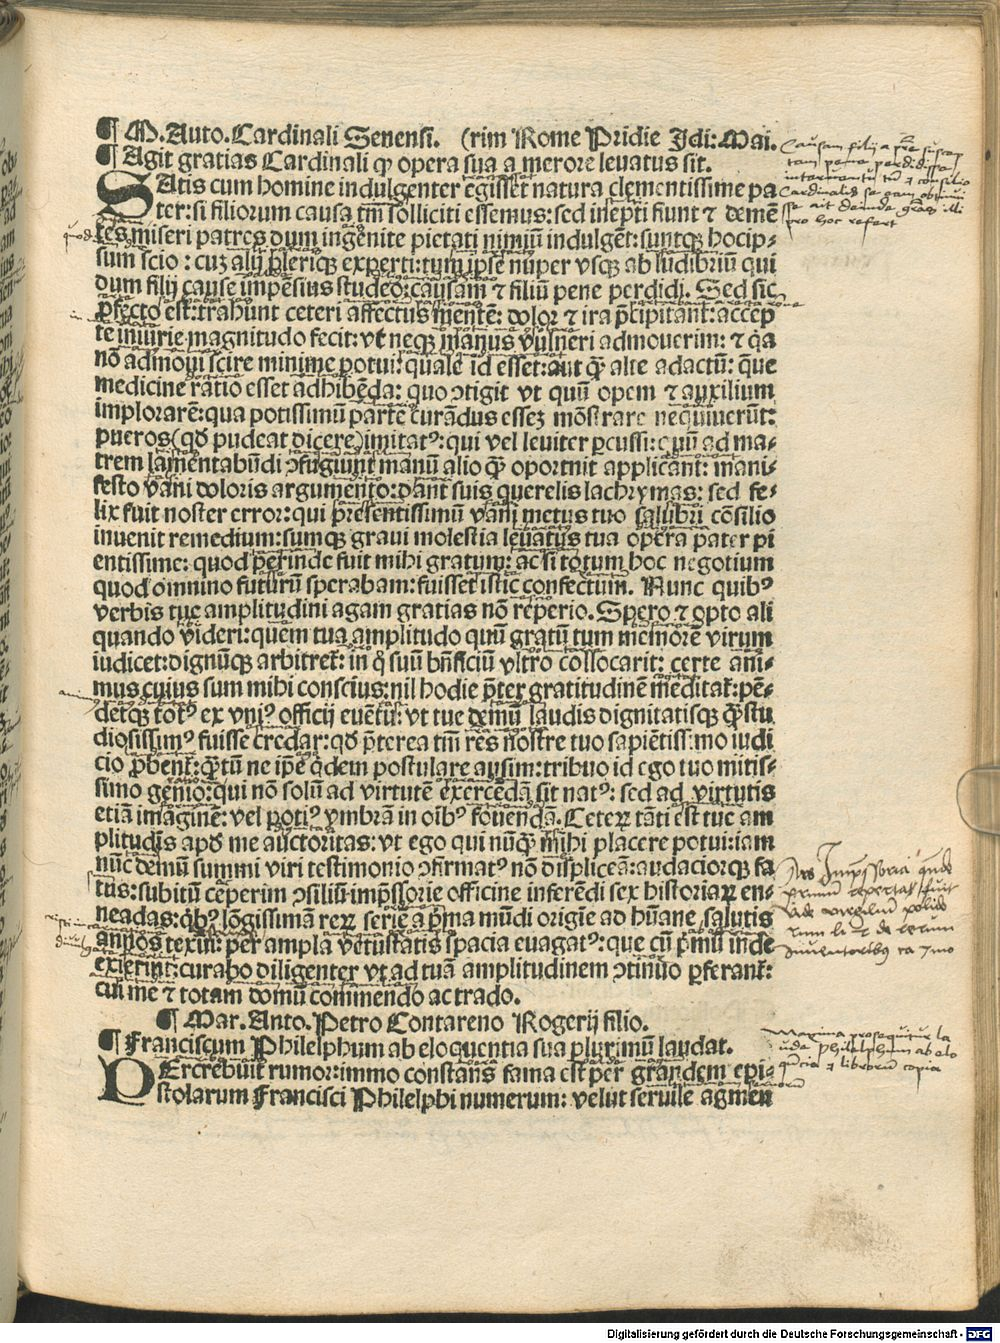 ¶ M. Anto. Cardinali Senensi. (rim Rome Pridie Idi: Mai.
¶ Agit gratias Cardinali ꝙ opera sua a merore levatus sit.
SAtis cum homine indulgenter egisset natura clementissime pa
ter: si filiorum causa tm̄ solliciti essemus: sed inepti fiunt ⁊ demē
tes miseri patres dum ingenite pietati nimiū indulgēt: suntqꝫ hoc ip⸗
sum scio: cuꝫ alij pleriqꝫ experti: tum ipse nuper vsqꝫ ab ludibriū qui
dum filij cause impēsius studeo: causam ⁊ filiū pene perdidi. Sed sic
ꝓfecto est: trahunt ceteri affectus mentē: dolor ⁊ ira p̄cipitant: accep
te iniurie magnitudo fecit: vt neqꝫ manus vulneri admoverim: ⁊ q̄a
nō admovi scire minime potui: quale id esset: aut qꝫ̄ alte adactū: que
medicine ratio esset adhibēda: quo ↄtigit vt quū opem ⁊ auxilium
implorarē: qua potissimū parte curādus essez mōstrare nequiverūt:
pueros (qd̄ pudeat dicere) imitatꝰ: qui vel leviter ꝑcussi: cuū ad ma⸗
trem lamentabūdi ↄfugiunt manū alio qꝫ̄ oportuit applicant: mani⸗
festo vani doloris argumento: dant suis querelis lachrymas: sed fe⸗
lix fuit noster error: qui presentissimū vani metus tuo salubri cōsilio
invenit remedium: sumqꝫ gravi molestia levatus tua opera pater pi
entissime: quod perinde fuit mihi gratum: ac si totum hoc negotium
quod omnino futurū sperabam: fuisset istic confectum. Nunc quibꝰ
verbis tue amplitudini agam gratias nō reperio. Spero ⁊ opto ali
quando videri: quem tua amplitudo quū gratū tum memorē virum
iudicet: dignūqꝫ arbitret̄: in q̊ suū bn̄ficiū vltro collocarit: certe ani⸗
mus cuius sum mihi conscius: nil hodie p̄ter gratitudinē meditat̄: pē⸗
detqꝫ totꝰ ex vniꝰ officij eventu: vt tue demū laudis dignitatisqꝫ qꝫ̄ stu
diosissimꝰ fuisse credar: qd̄ p̄terea tm̄ res nostre tuo sapiētissimo iudi
cio ꝓbent̄: qꝫ̄tū ne ip̄e q̇dem postulare ausim: tribuo id ego tuo mitis⸗
simo genio: qui nō solū ad virtutē exercendā sit natꝰ: sed ad virtutis
etiā imaginē: vel potiꝰ vmbrā in oibꝰ fovendā. Ceterꝝ tāti est tue am
plitudīs apd̄ me auctoritas: vt ego qui nūqꝫ̄ mihi placere potui: iam
nūc demū summi viri testimonio ↄfirmatꝰ nō displiceā: audaciorqꝫ fa
tus: subitū ceperim ↄsiliū impssorie officine inferēdi sex historiaꝝ en⸗
neadas: q̇bꝰ lōgissimā reꝝ seriē a p̄ma mūdi origīe ad hūane salutis
annos texui: per ampla vetustatis spacia evagatꝰ: que cū pͥmū inde
exierint: curabo diligenter vt ad tuā amplitudinem ↄtinuo ꝑferant̄:
cui me ⁊ totam domū commendo ac trado.
¶ Mar. Anto. Petro Contareno Rogerij filio.
¶ Franciscum Philelphum ab eloquentia sua plurimū laudat.
PErcrebuit rumor: immo constans fama est per grandem epi⸗
stolarum Francisci Philelphi numerum: velut servile agmen
Causam filij a pr̄e suscep
tam pene perdidisse
Cardinalis
pro hoc refert
Ars Impssoria quando
primum aperta fuit
vide vergiliū polido
rum li 2 de rerum
inventoribꝰ ca 7mo
Maxima prosequitur la
ude philelphum ab elo
quēcia ⁊ librorum copia
Digitalisierung gefördert durch die Deutsche Forschungsgemeinschaft - DFG